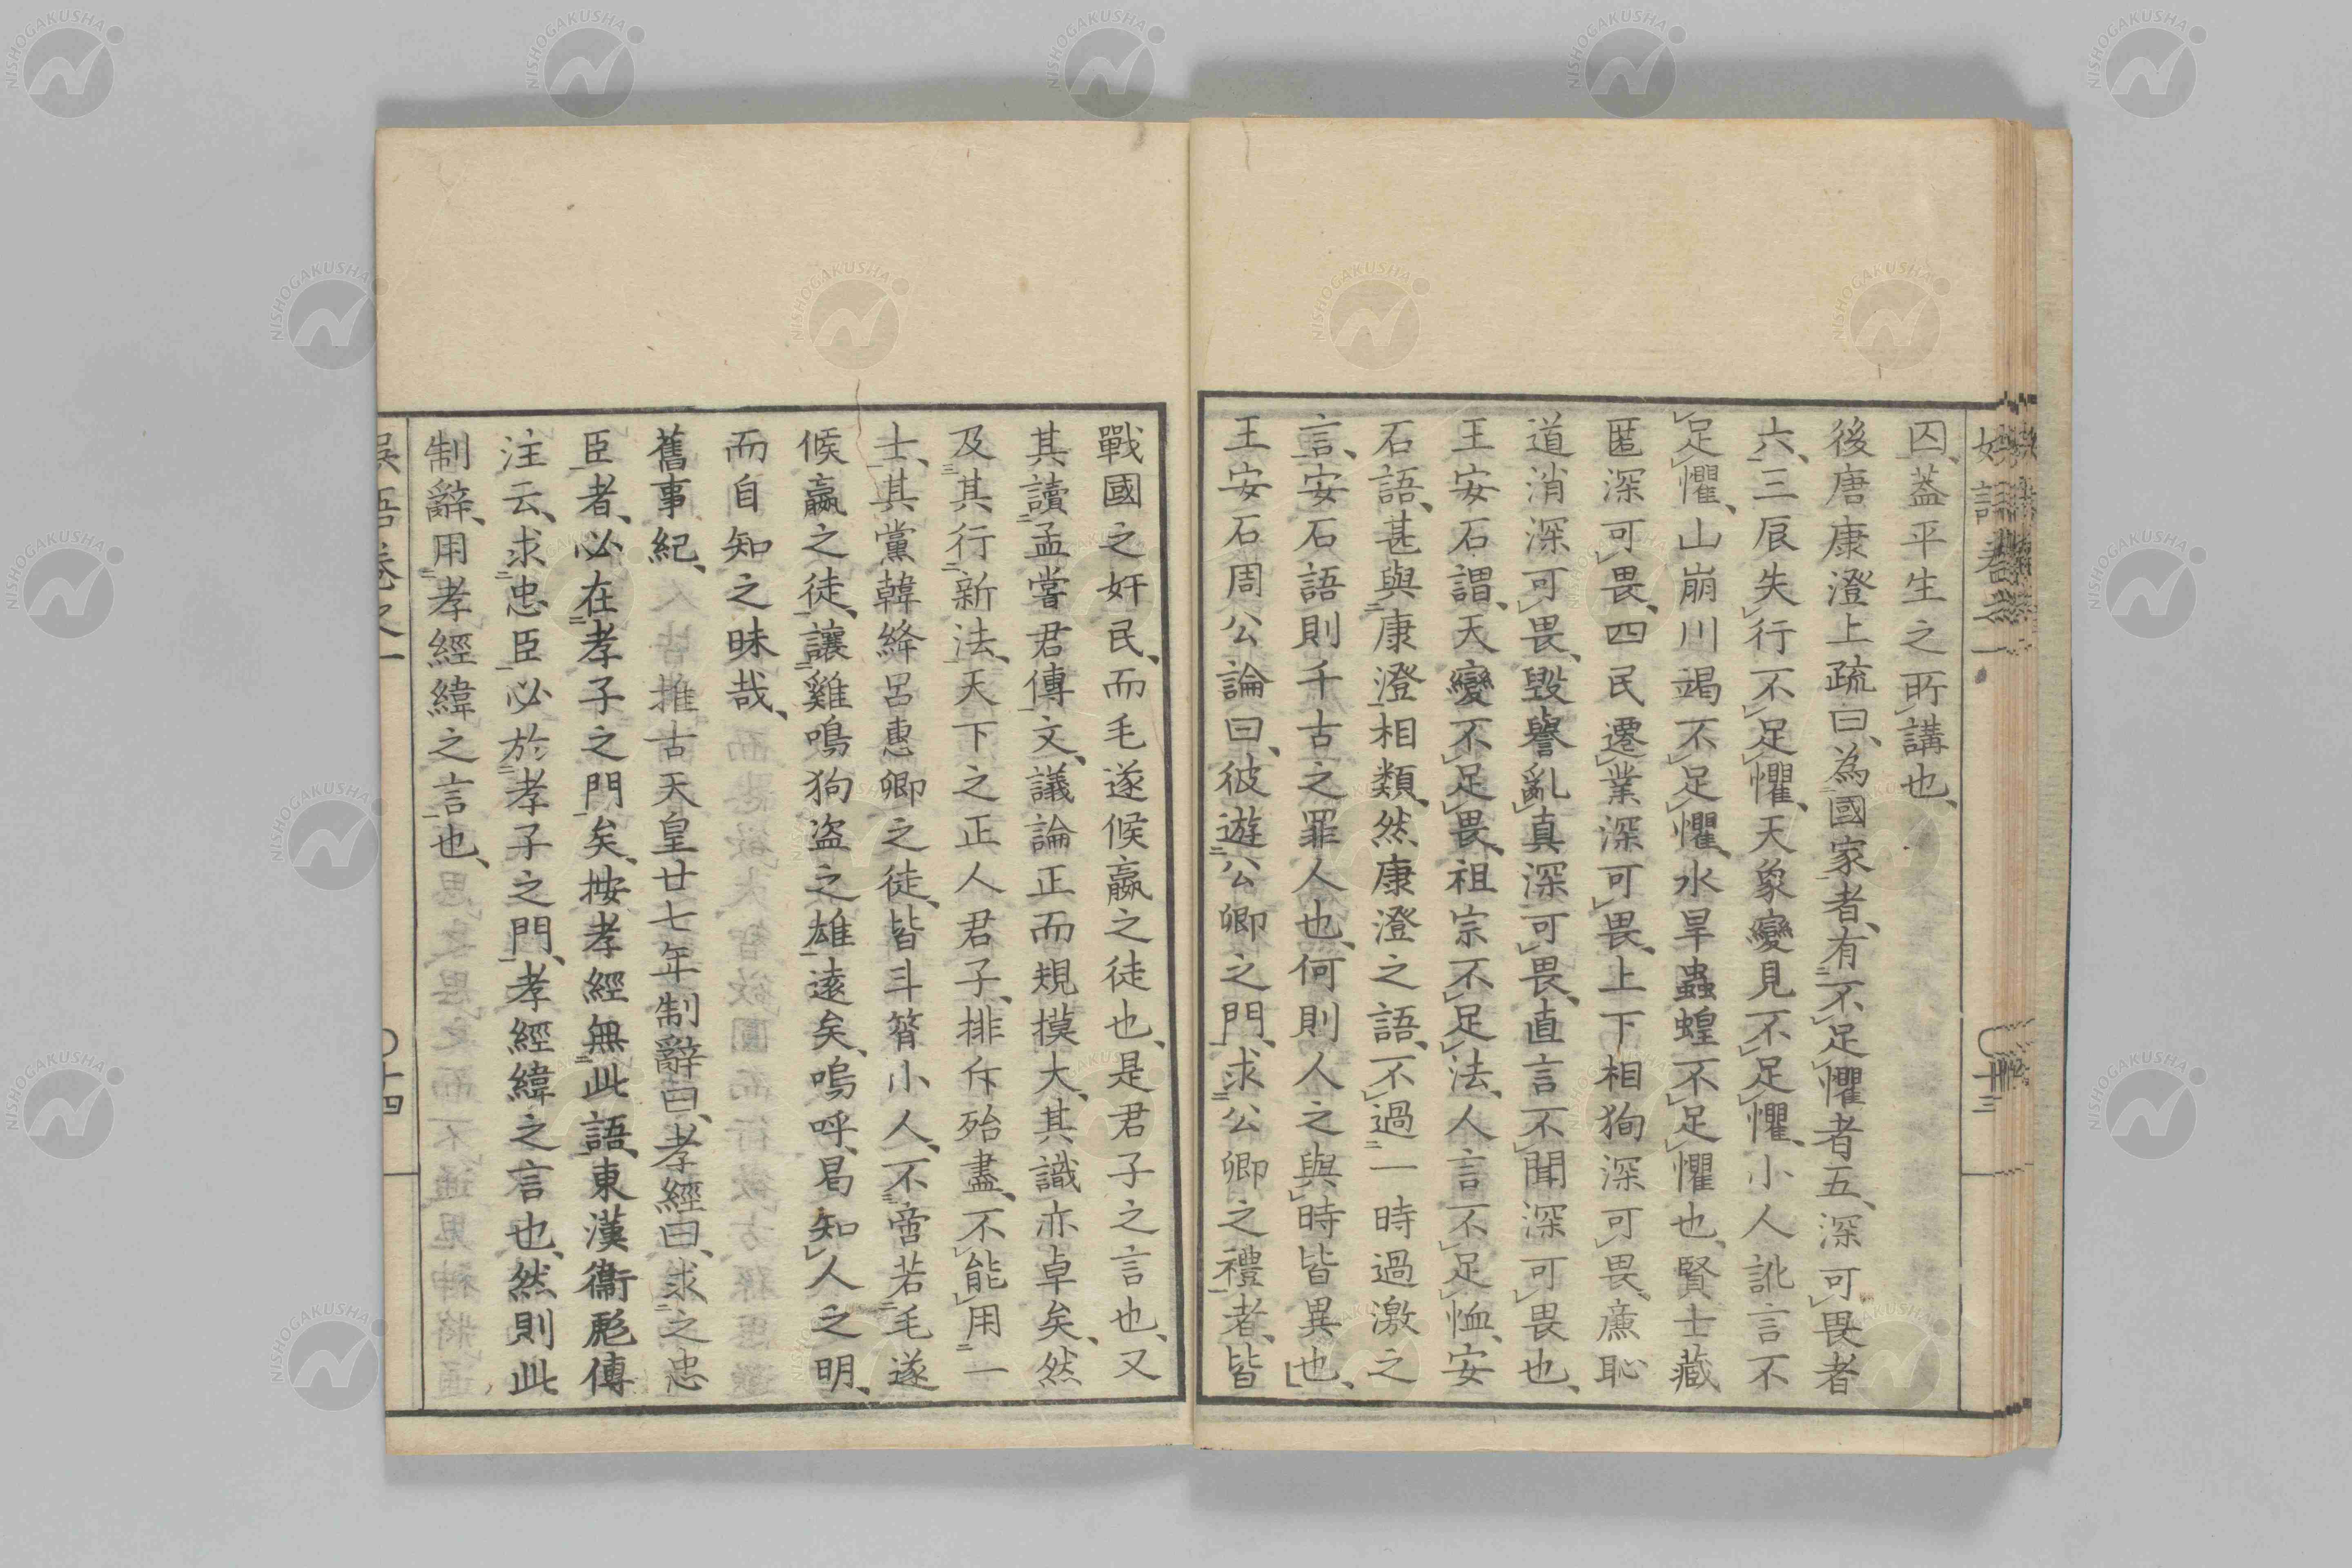 囚、蓋平生之所講也、
後唐康澄上疏曰、為國家者、有不足懼者五、深可畏者
六、三辰失行不足懼、天象變見不足懼、小人訛言不
足懼、山崩川竭不足懼、水旱蟲蝗不足懼也、賢士藏
匿深可畏、四民遷業深可畏、上下相狥深可畏、廉恥
道消深可畏、毀譽亂真深可畏、直言不聞深可畏也、
王安石謂、天變不足畏、祖宗不足法、人言不足恤、安
石語、甚與康澄相類、然康澄之語、不過一時過激之
言、安石語則千古之罪人也、何則人之與時皆異也、
王安石周公論曰、彼遊公卿之門、求公卿之禮者、皆
戰國之奸民、而毛遂候嬴之徒也、是君子之言也、又
其讀孟嘗君傳文、議論正而規摸大、其識亦卓矣、然
及其行新法、天下之正人君子、排斥殆盡、不能用一
士、其黨韓絳呂惠卿之徒、皆斗筲小人、不啻若毛遂
候嬴之徒、讓雞鳴狗盗之雄遠矣、嗚呼、曷知人之明、
而自知之昧哉、
舊事紀、推古天皇廿七年制辭曰、孝經曰、求之忠
臣者、必在孝子之門矣、按孝經無此語、東漢衞彪傳
注云、求忠臣必於孝子之門、孝經緯之言也、然則此
制辭、用孝經緯之言也、
語卷之一
十三
語卷之一
〇十四
NISHOGAKUSHA